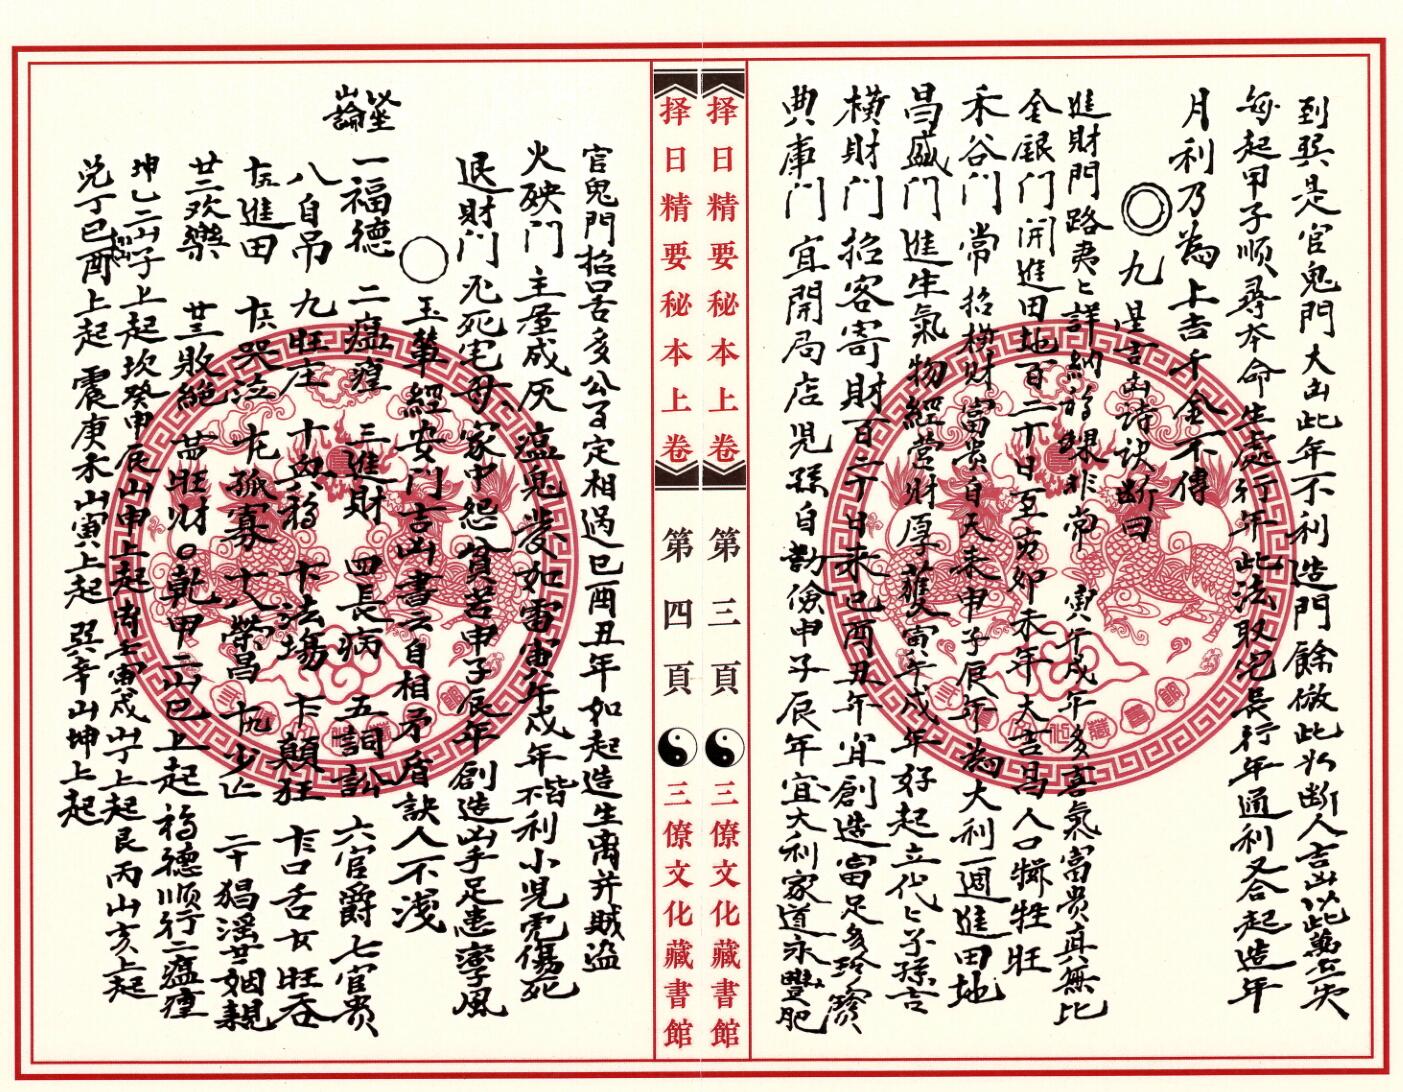 到巽是官鬼門大凶此年不利造門餘倣此以斷人吉凶以此萬無失
每起甲子順尋本命生處行年此法取兒吳行年通利又合起造年
月利乃為上吉千金不傳
◎九星吉凶詩訣斷曰
進財門路喪々詳納福堤非常 寅午戌年多喜氣富貴真無比
金銀門開進田地百二十日至亥卯未年大吉昌人口犢牲旺
禾谷門常招横財富貴自天来申子辰年為大利週進田地
昌盛門進生氣物經營財厚蘿寅午戌年好起立代々子孫言
横財門招客寄財百二十日来巳酉丑年宜創造富足多珍寶
典庫門宜開局店児孫自勤儉申子辰年宜大利家道永豐肥
择日精要秘本上卷 第三頁 三僚文化藏書館
择日精要秘本上卷 第四頁 三僚文化藏書館
官鬼門招口舌多公事定相遇巳酉丑年如起造生离并賊盗
火殃門主產成灰瘟鬼發如雷寅午戌年皆不利小児電傷死
退財門死宅母家中怨貧苦甲子辰年創造凶手足患瘋風
〇玉輦經安門吉凶書云自相矛盾訣人不淺
以坐山論
一福德 二瘟瘟 三進財 四長病 五詞訟 六官爵 七官貴
八自吊 九旺庄 十興福 十一法場 十二顛狂 十三口舌 十四旺蚕
十五進田 十六哭泣 十七孤寡 十八榮昌 十九少亡 二十猖淫 廿一姻親
廿二欢樂 廿三敗絕 廿四旺財 〇乾甲二山巳上起福德順行二瘟瘟
坤乙二山子上起坎癸申辰山申上起离壬寅戌山丁上起艮丙山亥上起
兑丁巳酉山上起 震庚未山寅上起 巽辛山坤上起